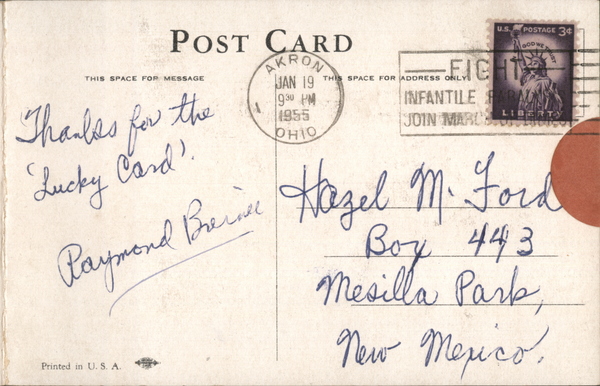 POST CARD
THIS SPACE FOR MESSAGE
THIS SPACE FOR ADDRESS ONLY
AKRON
JAN 19
9 30 PM
1955
OHIO
1
FIGHT
INFANTILE
JOIN
U.S. POSTAGE 3¢
IN GOD WE TRUST
LIBERTY
Thanks for the
'Lucky Card'.
Raymond
Hazel M. Ford
Box 443
Mesilla Park,
New Mexico.
Printed in U. S. A.